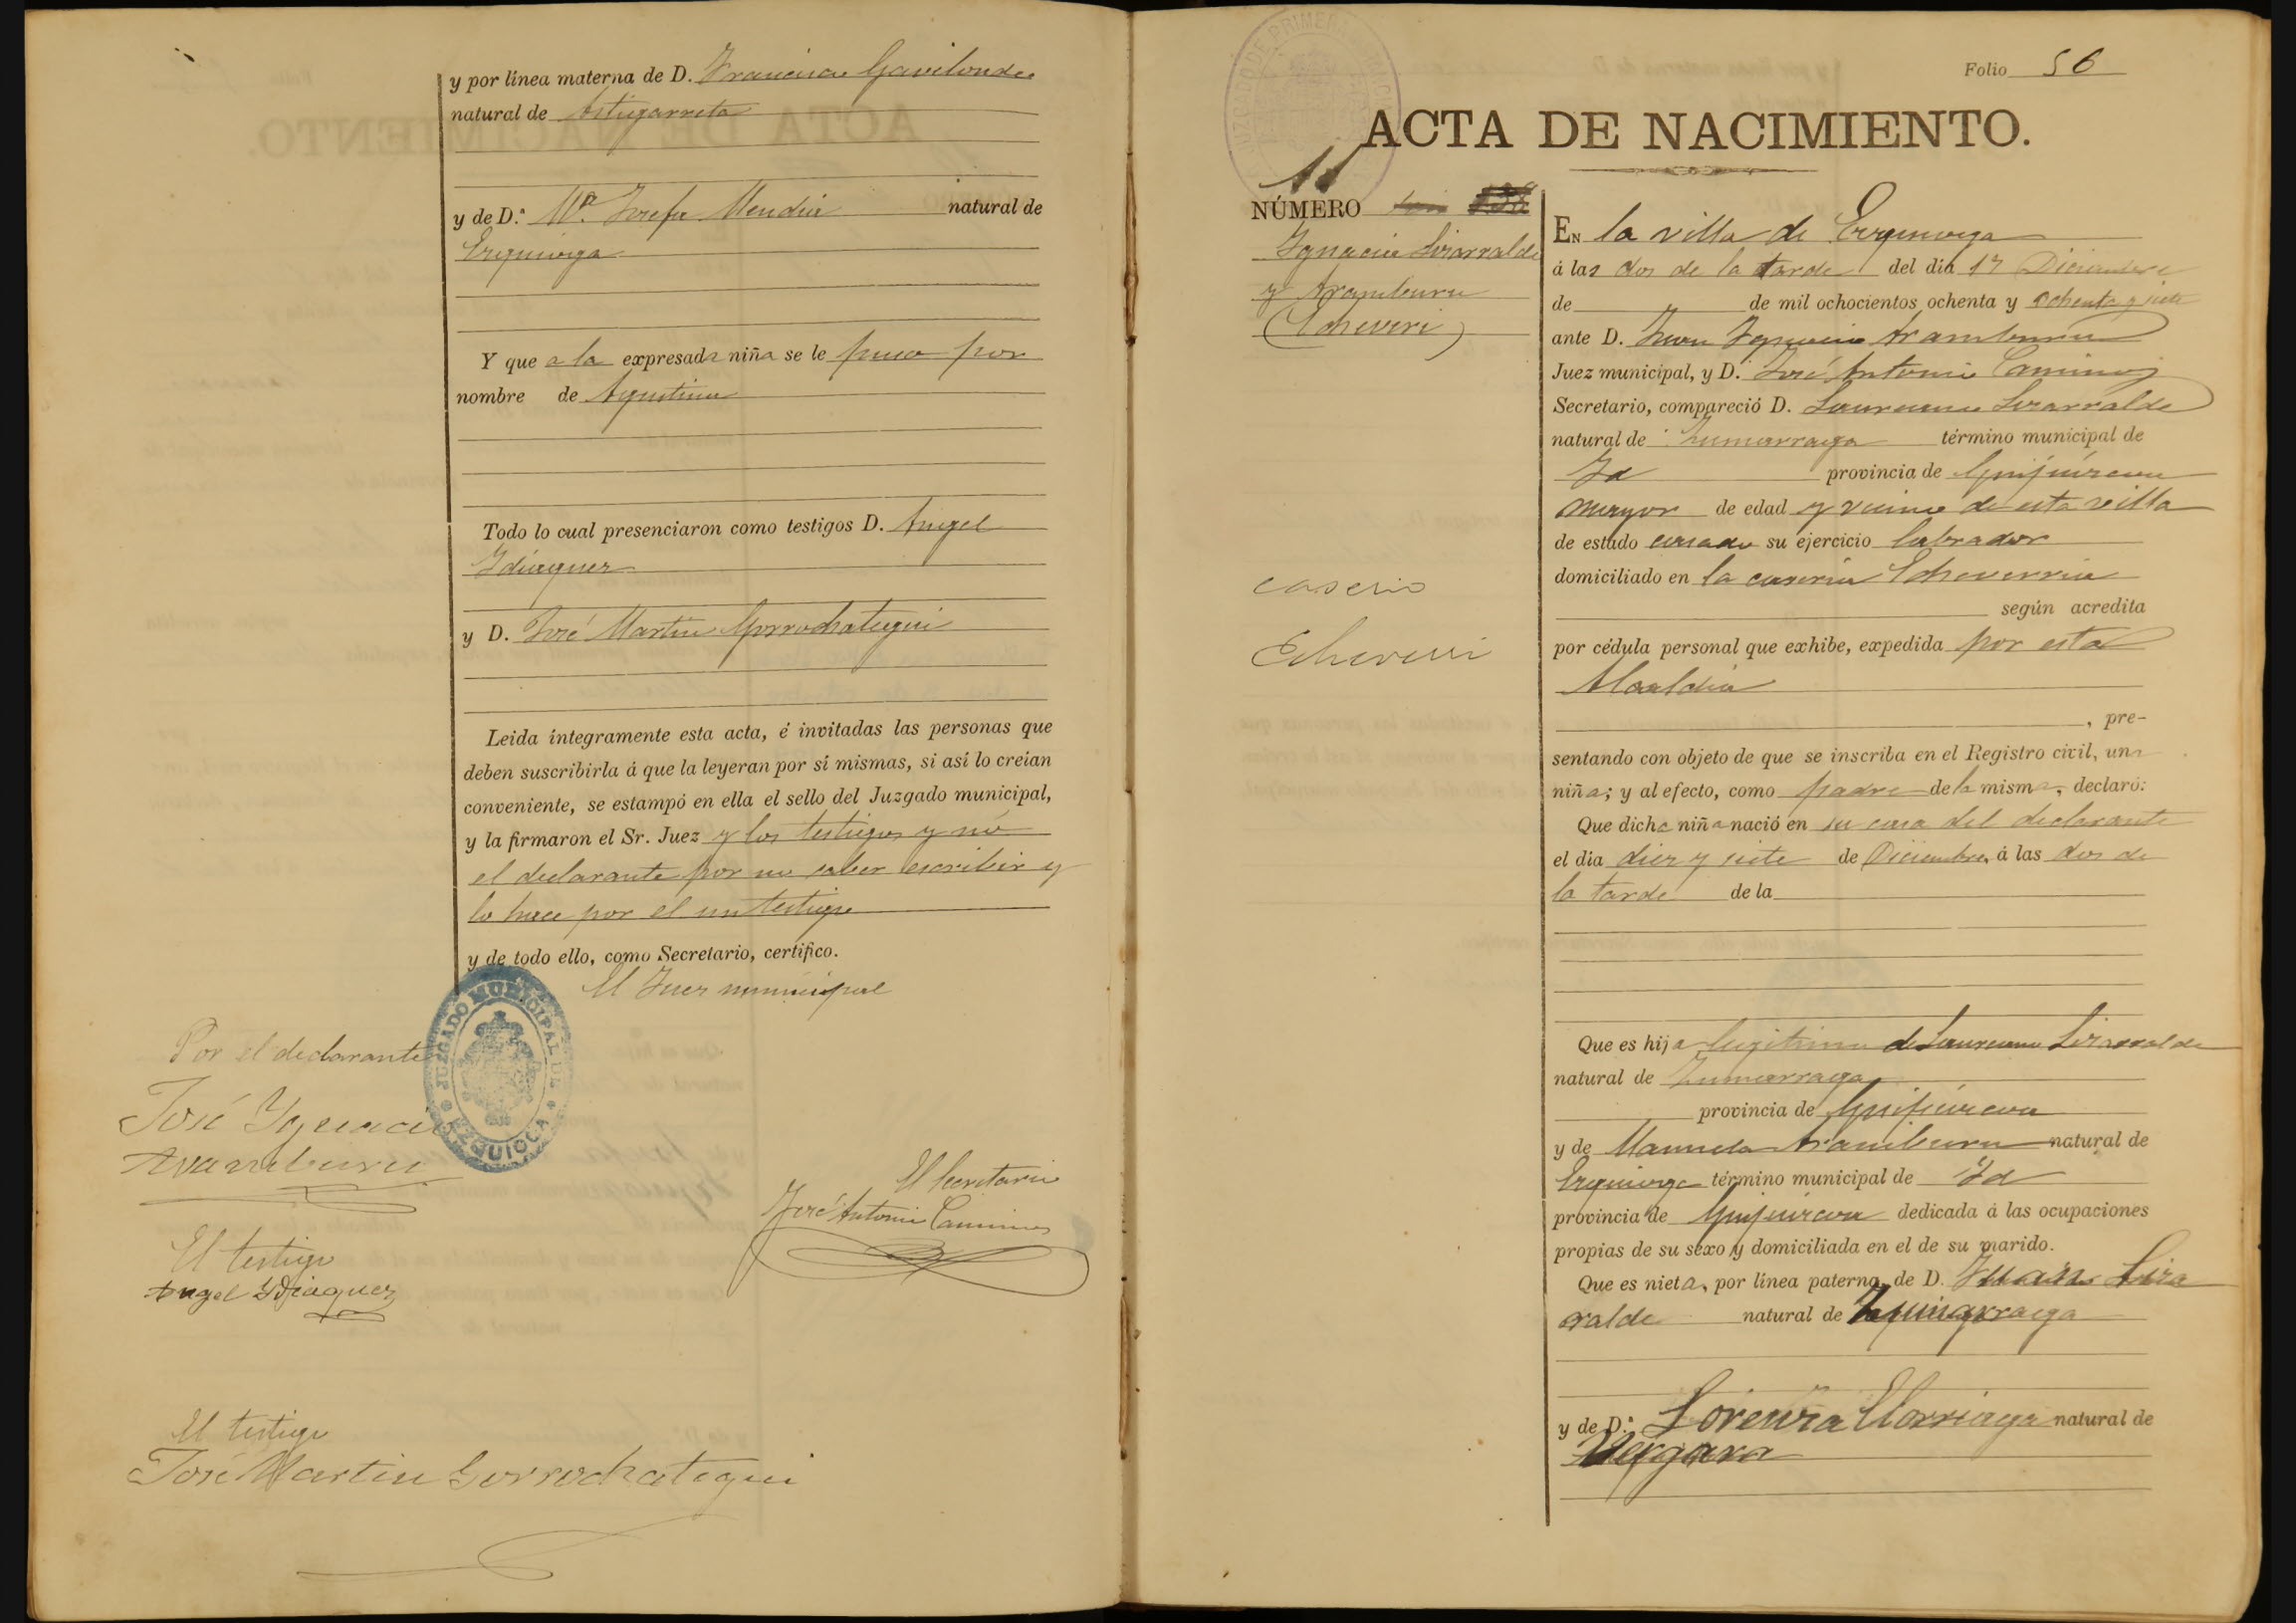 y por línea materna de D. Francisco Gavilondo
natural de Astigarreta
y de D.ª Mª Josefa Mendia natural de
Ezquioga
Y que a la expresada niña se le puso por
nombre de Agustina
Todo lo cual presenciaron como testigos D. Angel
Ydiaquez
y D. José Martin Gorrochategui
Leida íntegramente esta acta, é invitadas las personas que
deben suscribirla á que la leyeran por sí mismas, si así lo creían
conveniente, se estampó en ella el sello del Juzgado municipal,
y la firmaron el Sr. Juez y los testigos y no
el declarante por no saber escribir y
lo hace por el un testigo
y de todo ello, como Secretario, certifico.
El Juez municipal
JUZGADO MUNICIPAL DE
EZQUIOGA
Por el declarante
José Ygnacio
Aramburu
El Secretario
José Antonio Camino
El testigo
Angel Ydiaquez
El testigo
José Martin Gorrochategui
Folio 56
ACTA DE NACIMIENTO.
11
NÚMERO
Ygnacia Lizarralde
y Aramburu
(Echeverri)
caserio
Echeverri
En la villa de Ezquioga
á las dos de la tarde del dia 17 Diciembre
de de mil ochocientos ochenta y ochenta y siete
ante D. Juan Ygnacio Aramburu
Juez municipal, y D. José Antonio Camino
Secretario, compareció D. Laureano Lizarralde
natural de Zumarraga término municipal de
Id provincia de Guipúzcoa
mayor de edad y vecino de esta villa
de estado casado su ejercicio labrador
domiciliado en la caseria Echeverria
según acredita
por cédula personal que exhibe, expedida por esta
Alcaldia
, pre-
sentando con objeto de que se inscriba en el Registro civil, una
niña; y al efecto, como padre de la misma, declaró:
Que dicha niña nació en su casa del declarante
el dia diez y siete de Diciembre, á las dos de
la tarde de la
Que es hija legitima de Laureano Lizarralde
natural de Zumarraga
provincia de Guipúzcoa
y de Manuela Aramburu natural de
Ezquioga término municipal de Id
provincia de Guipúzcoa dedicada á las ocupaciones
propias de su sexo y domiciliada en el de su marido.
Que es nieta, por línea paterna de D. Juan Liza
ralde natural de Zumarraga
y de D.ª Lorenza Elorriaga natural de
Vergara